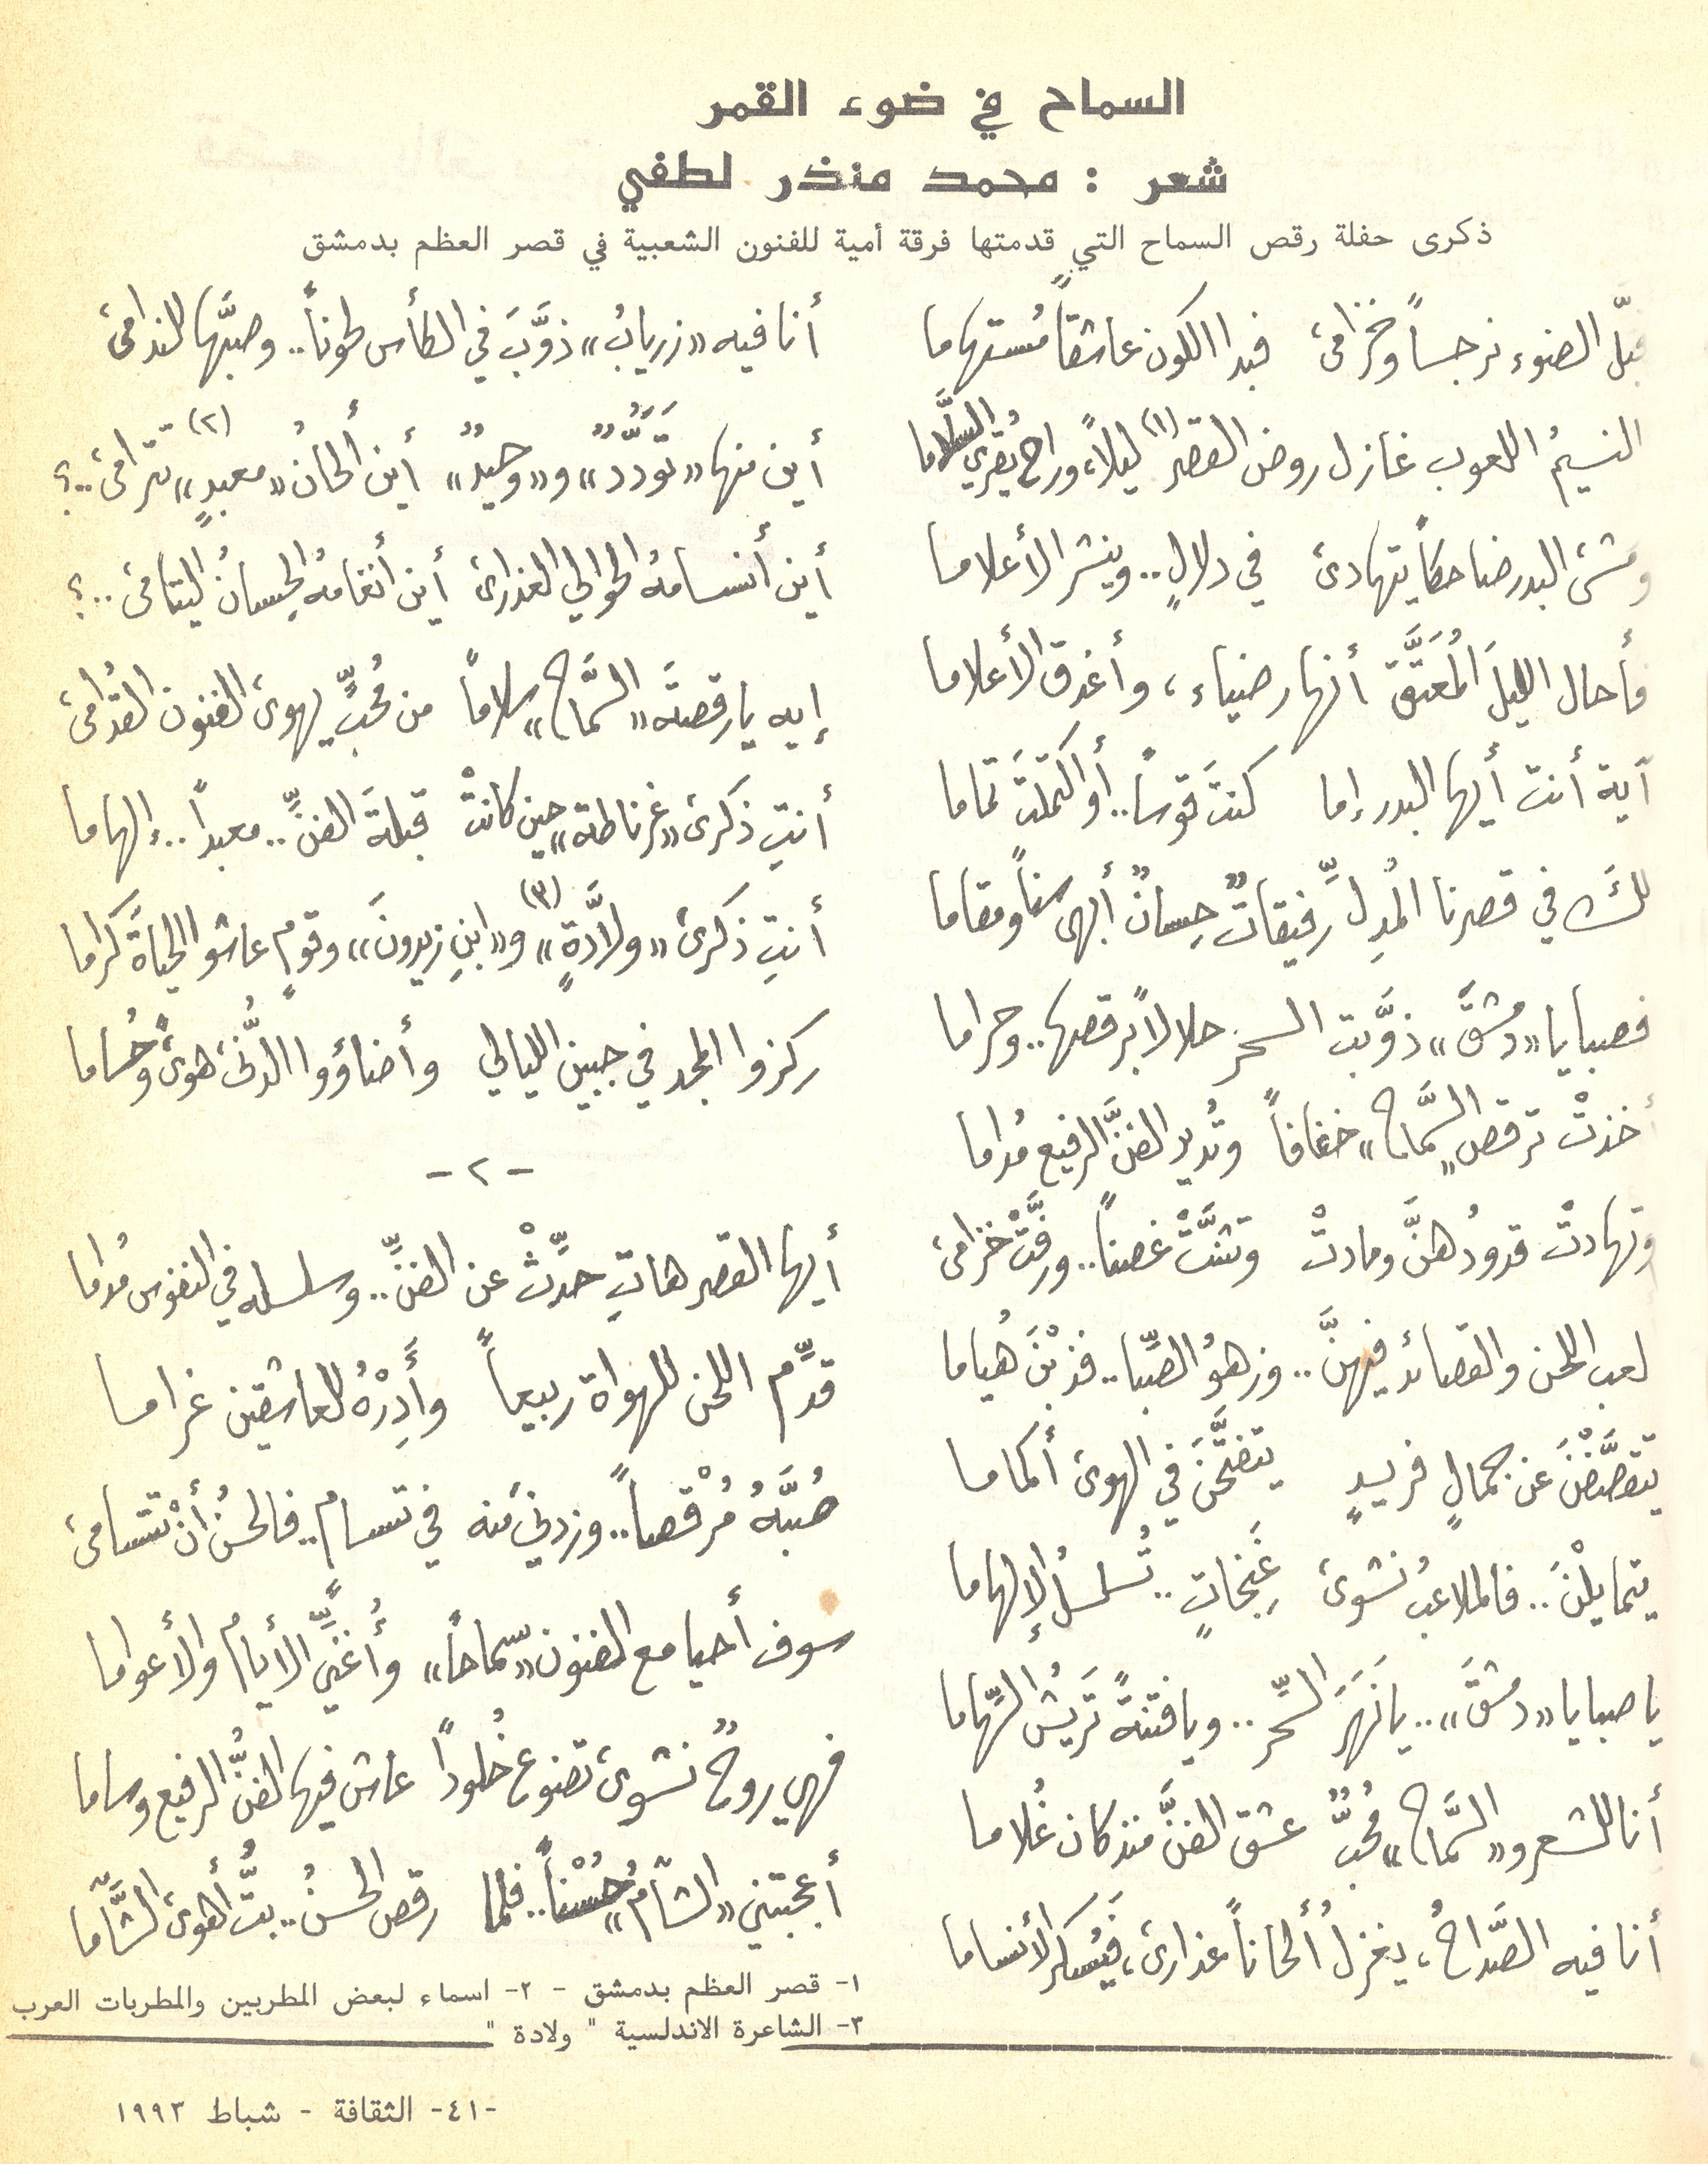 السماح في ضوء القمر
شعر : محمد منذر لطفي
ذكرى حفلة رقص السماح التي قدمتها فرقة أمية للفنون الشعبية في قصر العظم بدمشق
قبّل الضوء نرجساً وخزامىٰ فبدا الكون عاشقاً مُستهاما
النسيمُ اللعوب غازل روض القصر (١) ليلاً، وراح يُقري السلَّاما
ومشىٰ البدر ضاحكاً يتهادىٰ في دلالٍ.. وينشر الأعلاما
فأحال الليلَ المُعَتَّقَ أنهار ضياء، وأغدق الأعلاما
آية أنت أيها البدر إما كنتَ قوساً.. أو اكتملتَ تماما
لكَ في قصرنا المُدِلِّ رفيقاتٌ حِسانٌ أبهى سناً ومقاما
فصبايا «دمشقَ» ذوَّبت السحر حلالاً برقصها.. وحراما
أخذتْ ترقص «السَّماح» خفافاً وتُدير الفنَّ الرفيع مُداما
وتهادتْ قدودُهنَّ ومادتْ وتثنَّتْ غصناً.. ورفَّتْ خزامىٰ
لعب اللحن والقصائد فيهنَّ.. وزهوُ الصِّبا.. فذبْنَ هُياما
يتقصَّفْنَ عن جمالٍ فريدٍ يتفتَّحْنَ في الهوىٰ أكماما
يتمايلْنَ.. فالملاعبُ نشوىٰ غَنِجاتٍ.. تُسلسلُ الإلهاما
يا صبايا «دمشقَ».. يا نَهَرَ السِّحرِ.. ويا فتنةً تَريشُ السِّهاما
أنا للشعر و«السَّماح» مُحبٌّ عشق الفنَّ منذ كان غُلاما
أنا فيه الصَّداحُ، يغزلُ ألحاناً عذارىٰ، فَيُسكر الأنساما
أنا فيه «زريابُ» ذوَّبَ في الكأس لحوناً.. وصبَّها للندامىٰ
أين منها «تَوَدُّدٌ» و«وحيدٌ» أين ألحانُ «معبدٍ» تترامىٰ..؟ (٢)
أين أنسامهُ الحوالي العذارىٰ أين أنغامهُ الحِسانُ اليتامىٰ..؟
إيه يا رقصةَ «السَّماح» سلاماً من مُحبٍّ يهوىٰ الفنون القُدامىٰ
أنتِ ذكرىٰ «غرناطة» حين كانتْ قبلةَ الفنِّ.. معبداً.. إلهاما
أنتِ ذكرىٰ «ولاَّدةٍ» (٣) و«ابنِ زيدونَ» وقومٍ عاشوا الحياةَ كراما
ركزوا المجد في جبين الليالي وأضاؤوا الدُّنىٰ هوىً وحُساما
- ٢ -
أيها القصر هاتِ حدِّثْ عن الفنِّ.. وسلسله في النفوس مُداما
قدِّم اللحن للهواة ربيعاً وأَدِرْهُ للعاشقين غراما
صُبَّهُ مُرْقصاً.. وزدنيَ منه في تسامٍ.. فالحسنُ أنْ تتسامىٰ
سوف أحيا مع الفنون «سماحاً» وأُغنِّي الأيام والأعواما
فهي روحٌ نشوىٰ تضوع خُلوداً عاش فيها الفنُّ الرفيع وساما
أعجبتني «الشآم» حُسْناً.. فلما رقص الحسنُ.. بتُّ أهوىٰ الشَّآما
١- قصر العظم بدمشق - ٢- اسماء لبعض المطربين والمطربات العرب
٣- الشاعرة الاندلسية " ولادة "
-٤١- الثقافة - شباط ١٩٩٣